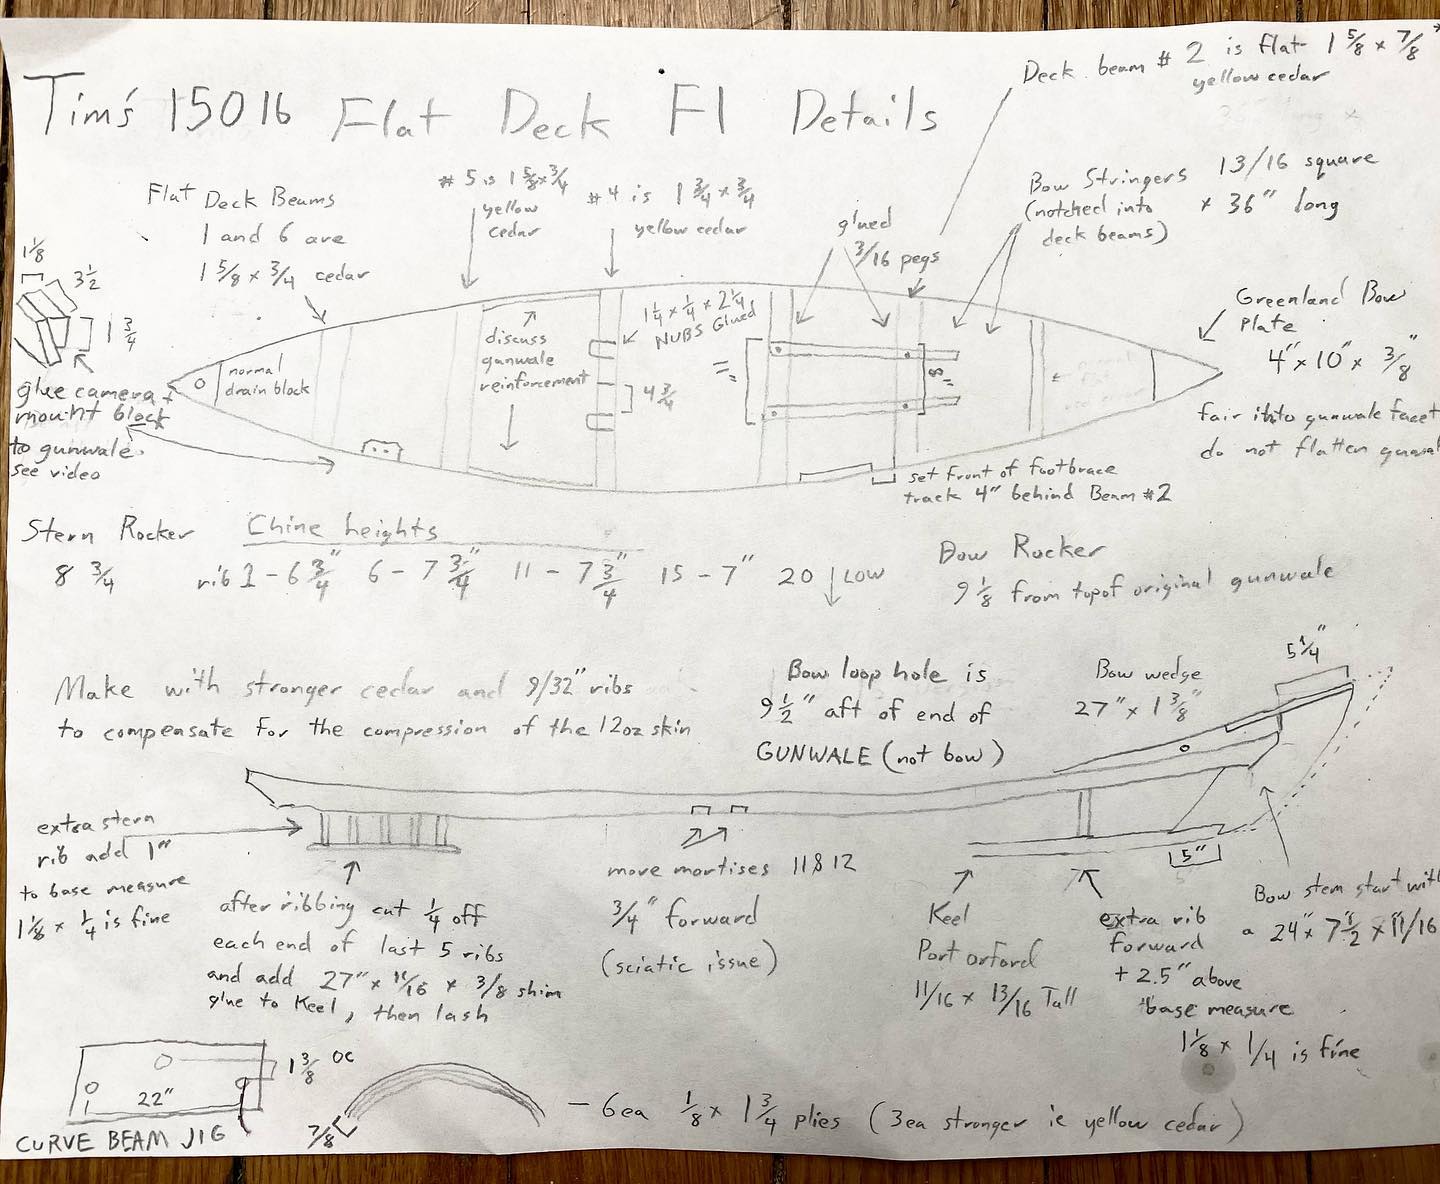 Tim's 15016 Flat Deck F1 Details
Deck beam # 2 is flat 1 5/8 x 7/8"
yellow cedar
Flat Deck Beams
1 and 6 are
1 5/8 x 3/4 cedar
# 5 is 1 5/8 x 3/4
yellow
cedar
# 4 is 1 3/4 x 3/4
yellow cedar
glued
3/16 pegs
Bow Stringers 13/16 square
(notched into x 36" long
deck beams)
1 1/8
3 1/2
1 3/4
glue camera
mount block
to gunwale.
see video
normal
drain block
discuss
gunwale
reinforcement
1 1/4 x 1/4 x 2 1/4
NUBS Glued
4 3/4
11"
8"
Greenland Bow
Plate
4" x 10" x 3/8"
fair into gunwale facet
do not flatten
set front of footbrace
track 4" behind Beam #2
Stern Rocker
8 3/4
Chine heights
rib 1 - 6 3/4" 6 - 7 3/4" 11 - 7 3/4" 15 - 7" 20 ↓ LOW
Bow Rocker
9 1/8 from top of original gunwale
Make with stronger cedar and 9/32" ribs
to compensate for the compression of the 12oz skin
Bow loop hole is
9 1/2" aft of end of
GUNWALE (not bow)
Bow wedge
27" x 1 3/8"
5 1/4"
extra stern
rib add 1"
to base measure
1 1/8 x 1/4 is fine
after ribbing cut 1/4 off
each end of last 5 ribs
and add 27" x 11/16 x 3/8 shim
glue to Keel, then lash
move mortises 11 & 12
3/4" forward
(sciatic issue)
5"
Keel
Port orford
11/16 x 13/16 Tall
extra rib
forward
+ 2.5" above
base measure
1 1/8 x 1/4 is fine
Bow stem start with
a 24" x 7 1/2" x 11/16
1 3/8 OC
22"
CURVE BEAM JIG
7/8
- 6ea 1/8 x 1 3/4 plies (3ea stronger ie yellow cedar)